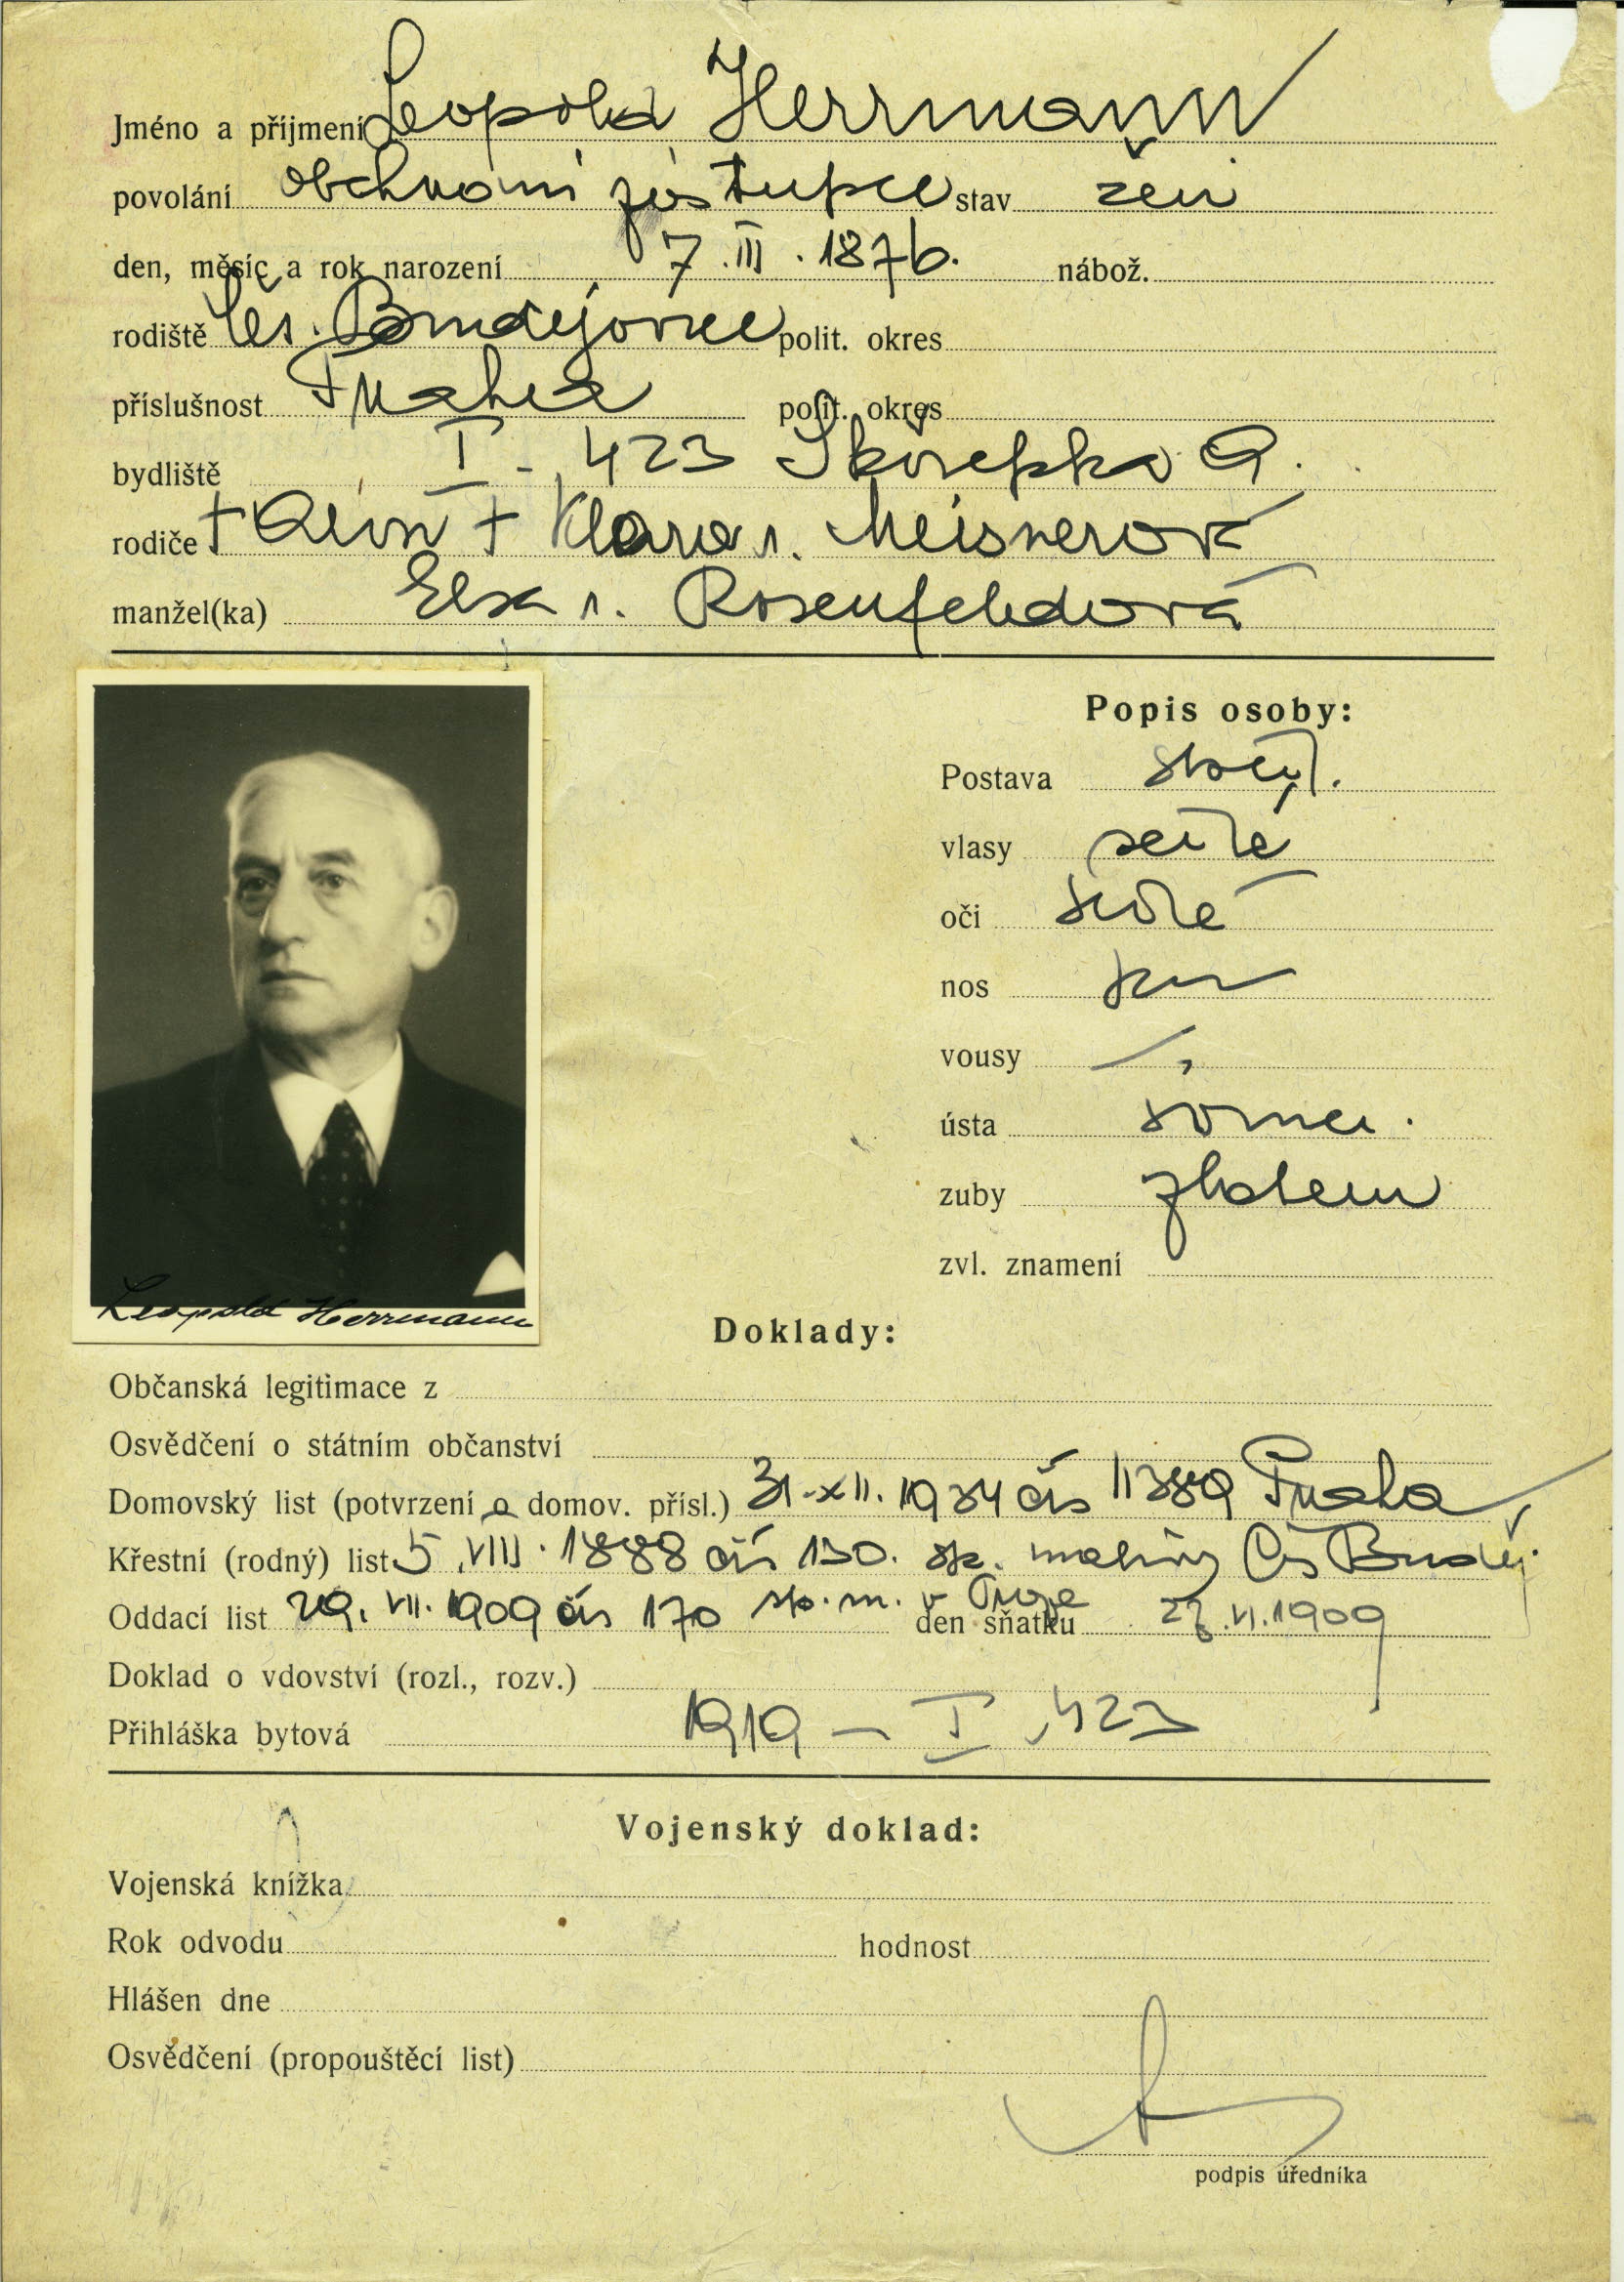 Jméno a příjmení Leopold Herrmann
povolání obchodní zástupce stav žen
den, měsíc a rok narození 7. III. 1876. nábož.
rodiště Čes. Budějovice polit. okres
příslušnost Praha polit. okres
bydliště I - 423 Skořepka 9.
rodiče + + Klara r. Meisnerová
manžel(ka) Elsa r. Rosenfeldová
Popis osoby:
Postava
vlasy šedé
oči šedé
nos
vousy
ústa
zuby zlatem
zvl. znamení
Leopold Herrmann
Doklady:
Občanská legitimace z
Osvědčení o státním občanství
Domovský list (potvrzení o domov. přísl.) 31.XII.1934 čís 11389 Praha
Křestní (rodný) list 5.VIII.1888 čís 130. matriky Čs Buděj.
Oddací list 29. VII. 1909 čís 170 v Praze den sňatku .VI.1909
Doklad o vdovství (rozl., rozv.)
Přihláška bytová 1919 – I, 423
Vojenský doklad:
Vojenská knížka
Rok odvodu hodnost
Hlášen dne
Osvědčení (propouštěcí list)
podpis úředníka